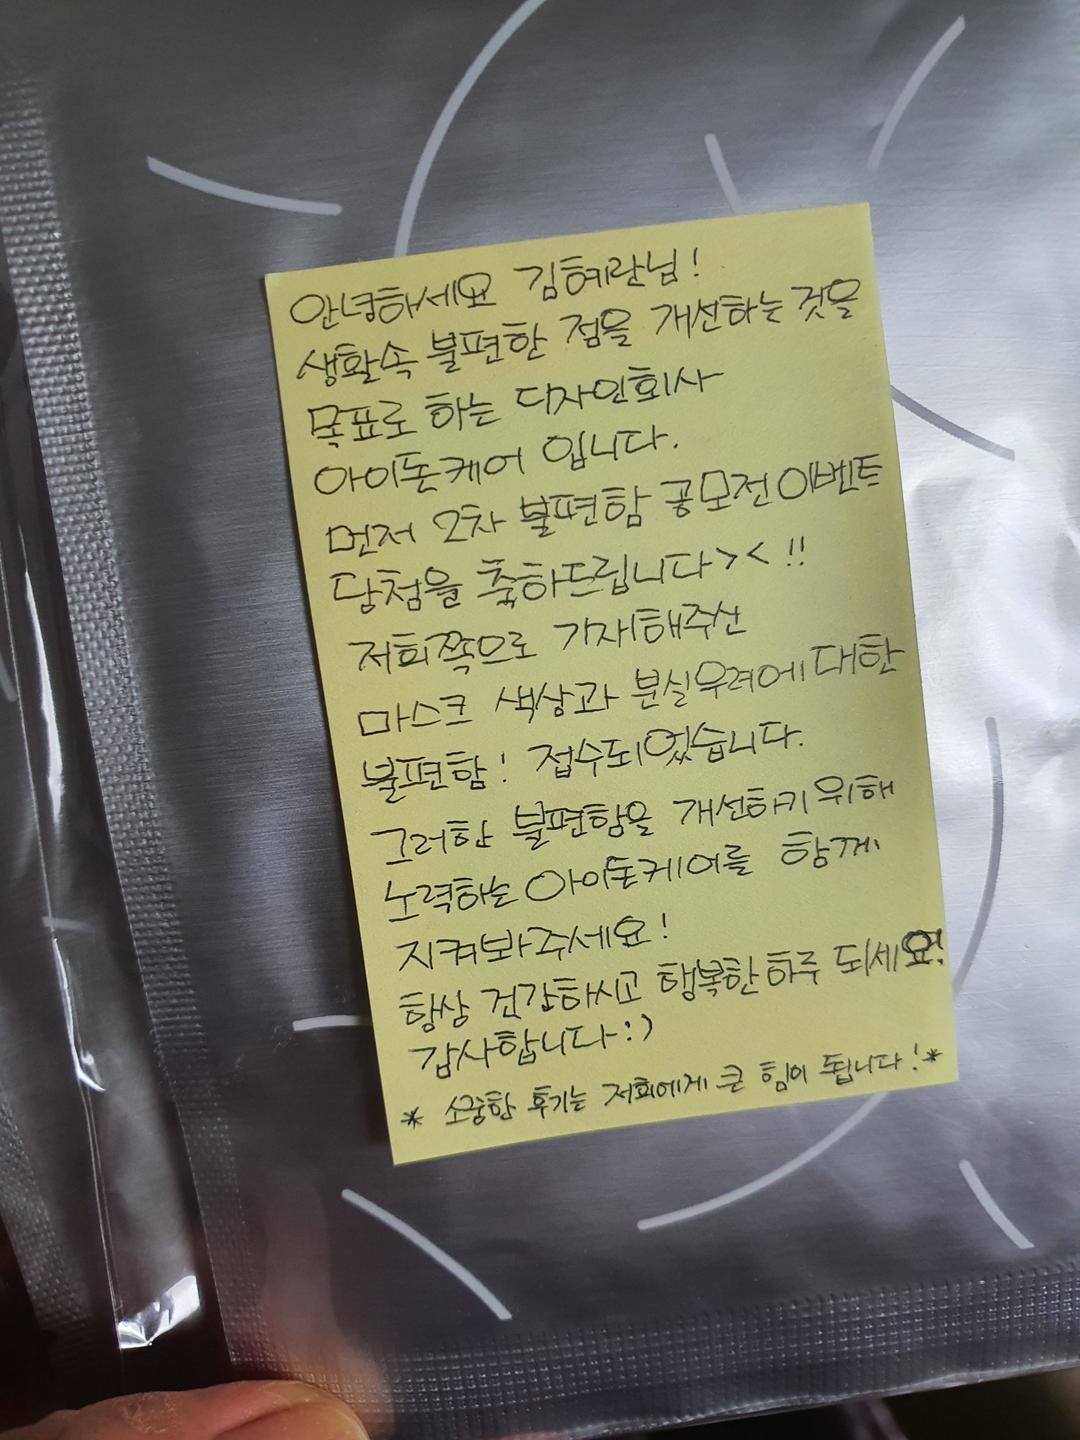 안녕하세요 김혜란님!
생활속 불편한 점을 개선하는 것을
목표로 하는 디자인회사
아이돈케어 입니다.
먼저 2차 불편함 공모전 이벤트
당첨을 축하드립니다 > < !!
저희쪽으로 기재해주신
마스크 색상과 분실우려에 대한
불편함! 접수되었습니다.
그러한 불편함을 개선하기 위해
노력하는 아이돈케어를 함께
지켜봐주세요!
항상 건강하시고 행복한 하루 되세요!
감사합니다 :)
* 소중한 후기는 저희에게 큰 힘이 됩니다! *